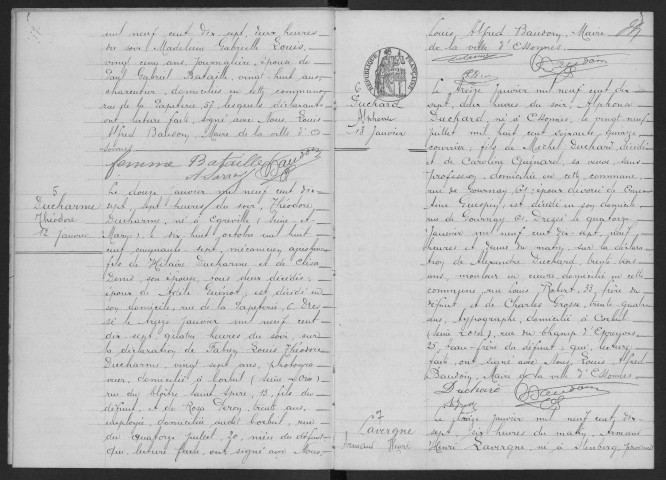 mil neuf cent dix sept, deux heures
du soir, Madeleine Gabrielle Louis,
vingt cinq ans, journalière, épouse de
Paul Gabriel Bataille, vingt huit ans,
charcutier, domiciliés en cette commune,
rue de la Papeterie, 57, lesquels déclarants
ont, lecture faite, signé avec Nous, Louis
Alfred Baudoin, Maire de la ville d'Es-
sonnes
femme Bataille Baudoin
5
Ducharme
Théodore
12 Janvier
Le douze janvier mil neuf cent dix
sept, sept heures du soir, Théodore
Ducharme, né à Egreville (Seine et
Marne) le dix huit octobre mil huit
cent cinquante sept, mécanicien,
fils de Hilaire Ducharme et de
Denis, son épouse, tous deux décédés;
époux de Adèle Guénot; est décédé en
son domicile, rue de la Papeterie, 6. Dres-
sé le treize janvier mil neuf cent
dix sept, quatre heures du soir, sur
la déclaration de Louis Théodore
Ducharme, vingt sept ans,
domicilié à Corbeil (Seine et Oise)
rue du 13, fils du
défunt, et de Rosa Leroy, trente ans,
employée, domiciliée audit Corbeil, rue
du quatorze juillet, 20, du défunt,
qui, lecture faite, ont signé avec Nous,
Louis Alfred Baudoin, Maire
de la ville d'Essonnes
Baudoin
6
Duchard
Alphonse
13 janvier
RÉPUBLIQUE FRANÇAISE
Le treize janvier mil neuf cent dix
sept, deux heures du soir, Alphonse
Duchard, né à Essonnes, le vingt neuf
juillet mil huit cent soixante quinze,
ouvrier, fils de Michel Duchard, décédé
et de Caroline Guignard, sa veuve, sans
profession, domiciliée en cette commune,
rue de Tournay, 61; époux divorcé de
est décédé en son domicile
rue de Tournay, 61. Dressé le quatorze
janvier mil neuf cent dix sept, neuf
heures et demie du matin, sur la déclara-
tion de Alexandre Duchard, trente trois
ans, mouleur en cuivre, domicilié en cette
commune, rue Louis Robert, 33, frère du
défunt et de Charles Grosse, trente quatre
ans, typographe, domicilié à Corbeil
(Seine et Oise), rue du Champ d'Epreuves,
25, beau-frère du défunt, qui, lecture
faite, ont signé avec Nous, Louis Alfred
Baudoin, Maire de la ville d'Essonnes
Duchard Baudoin
7
Lavergne
Armand Henri
Le treize janvier mil neuf cent dix
sept, dix heures du matin, Armand
Henri Lavergne, né à